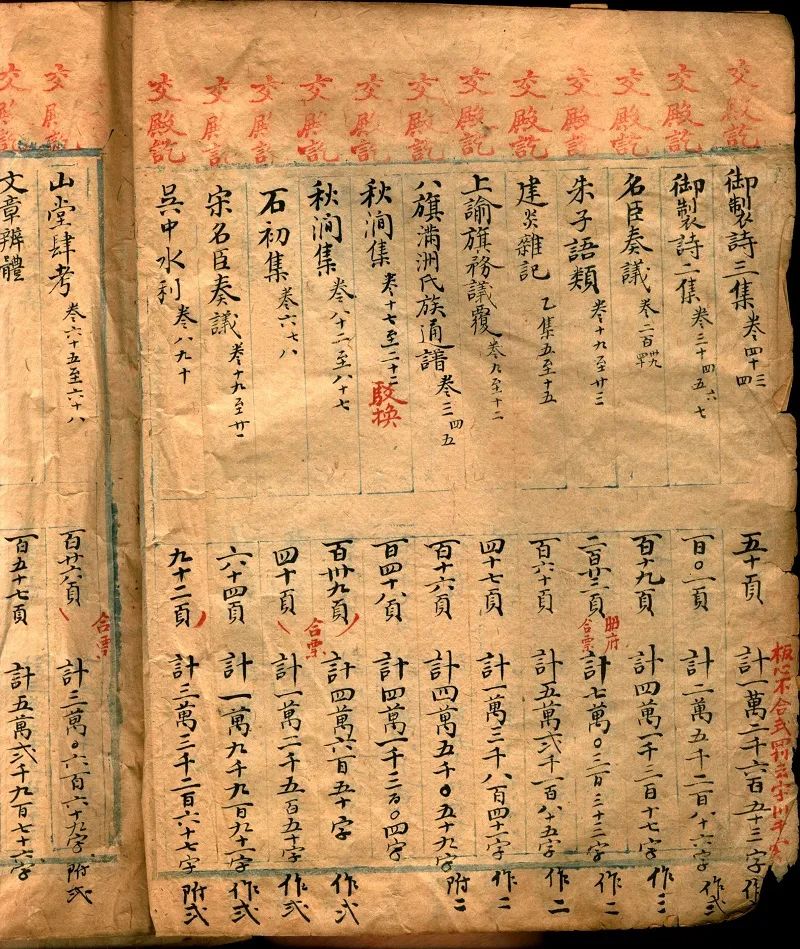 交殿訖 御製詩三集 卷四十三四十四 五十頁 計一萬二千六百五十三字 作
板心不合式
交殿訖 御製詩二集 卷三十四五六七 百〇一頁 計二萬五千二百八十六字 作弍
交殿訖 名臣奏議 卷二百 百十九頁 計四萬一千三百十七字 作三
交殿訖 朱子語類 卷十九至廿三 二百廿二頁 合票 計七萬〇三百三十三字 作二
交殿訖 建炎雜記 乙集五至十五 百六十頁 計五萬弍千一百八十五字 作二
交殿訖 上諭旗務議覆 卷九至十二 四十七頁 計一萬三千八百四十一字 作二
交殿訖 八旗滿洲氏族通譜 卷三四五 百十六頁 計四萬五千〇五十九字 附二
交殿訖 秋澗集 卷十七至二十二 駁換 百四十八頁 計四萬一千三百〇四字
交殿訖 秋澗集 卷八十二至八十七 百卅九頁 合票 計四萬六百五十字 作弍
交殿訖 石初集 卷六七八 四十頁 計一萬一千五百五十字 作弍
交殿訖 宋名臣奏議 卷十九至廿一 六十四頁 計一萬九千九百九十一字 作弍
交殿訖 吳中水利 卷八九十 九十二頁 計三萬三千二百六十七字 附弍
交殿訖 山堂肆考 卷六十五至六十八 百廿六頁 合票 計三萬〇六百六十九字 附弍
交殿訖 文章辨體 百五十七頁 計五萬弍千九百七十六字